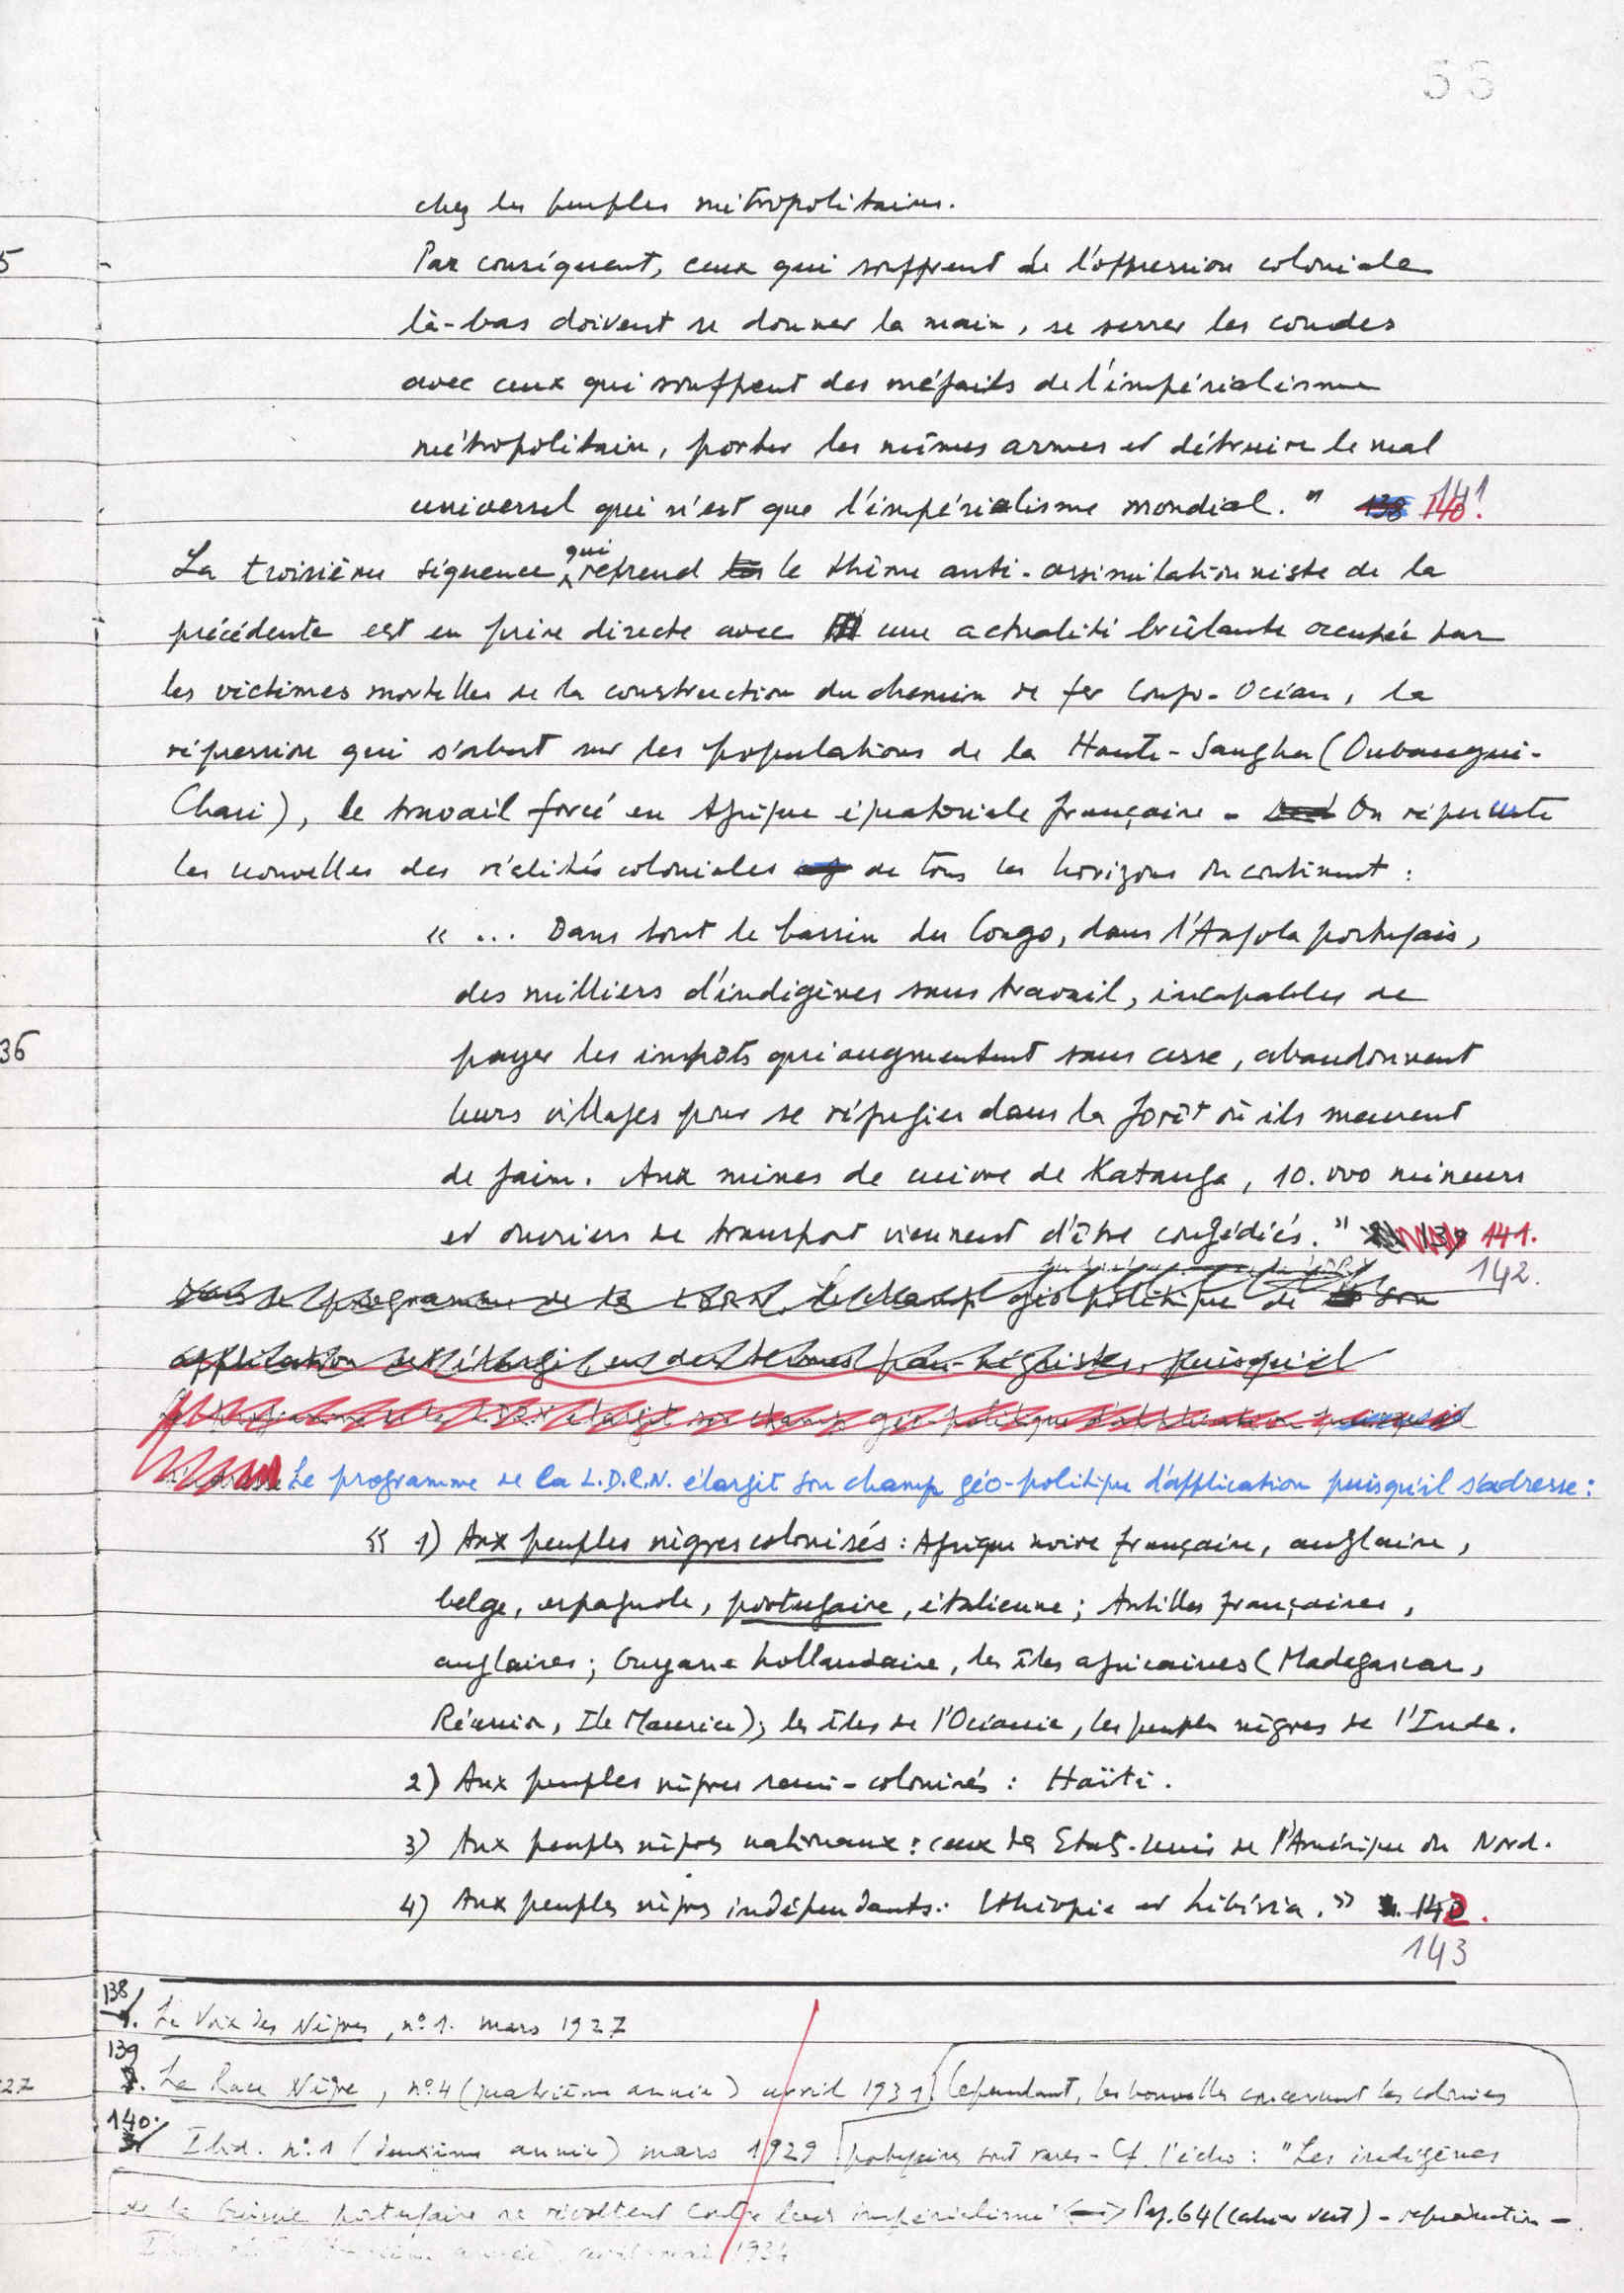 58
chez les peuples métropolitains.
5
Par conséquent, ceux qui souffrent de l'oppression coloniale
là-bas doivent se donner la main, se serrer les coudes
avec ceux qui souffrent des méfaits de l'impérialisme
métropolitain, porter les mêmes armes et détruire le mal
universel qui n'est que l'impérialisme mondial." 138 140. 141
La troisième séquence qui reprend le thème anti-assimilationniste de la
précédente est en prise directe avec une actualité brûlante occupée par
les victimes mortelles de la construction du chemin de fer Congo-Océan, la
répression qui s'abat sur les populations de la Haute-Sangha (Oubangui-
Chari), le travail forcé en Afrique équatoriale française - On répercute
les nouvelles des réalités coloniales de tous les horizons du continent :
« ... Dans tout le bassin du Congo, dans l'Angola portugais,
des milliers d'indigènes sans travail, incapables de
36
payer les impôts qui augmentent sans cesse, abandonnent
leurs villages pour se réfugier dans la forêt où ils meurent
de faim. Aux mines de cuivre de Katanga, 10.000 mineurs
et ouvriers de transport viennent d'être congédiés." 139 141.
142.
Dans le programme de la LDRN. Le champ géo politique de son
application est élargi, en des termes pan-négristes, puisqu'il
Le programme de la L.D.R.N élargit son champ géo-politique d'application puisqu'il
s'adresse Le programme de la L.D.R.N. élargit son champ géo-politique d'application puisqu'il s'adresse :
« 1) Aux peuples nègres colonisés : Afrique noire française, anglaise,
belge, espagnole, portugaise, italienne ; Antilles françaises,
anglaises ; Guyane hollandaise, les îles africaines (Madagascar,
Réunion, Ile Maurice) ; les îles de l'Océanie, les peuples nègres de l'Inde.
2) Aux peuples nègres semi-colonisés : Haïti.
3) Aux peuples nègres nationaux : ceux des Etats-Unis de l'Amérique du Nord.
4) Aux peuples nègres indépendants : Ethiopie et Libéria. » 142.
143
138
1. La Voix des Nègres, nº 1. mars 1927
139
27
2. La Race Nègre, nº 4 (quatrième année) avril 1931. Cependant, les nouvelles concernant les colonies
140.
3/ Ibid. nº 1 (deuxième année) mars 1929. portugaises sont rares - Cf. l'écho : "Les indigènes
de la Guinée portugaise se révoltent contre leur impérialisme" Pag. 64 (cahier vert) - reproduction -
année), avril-mai 1934